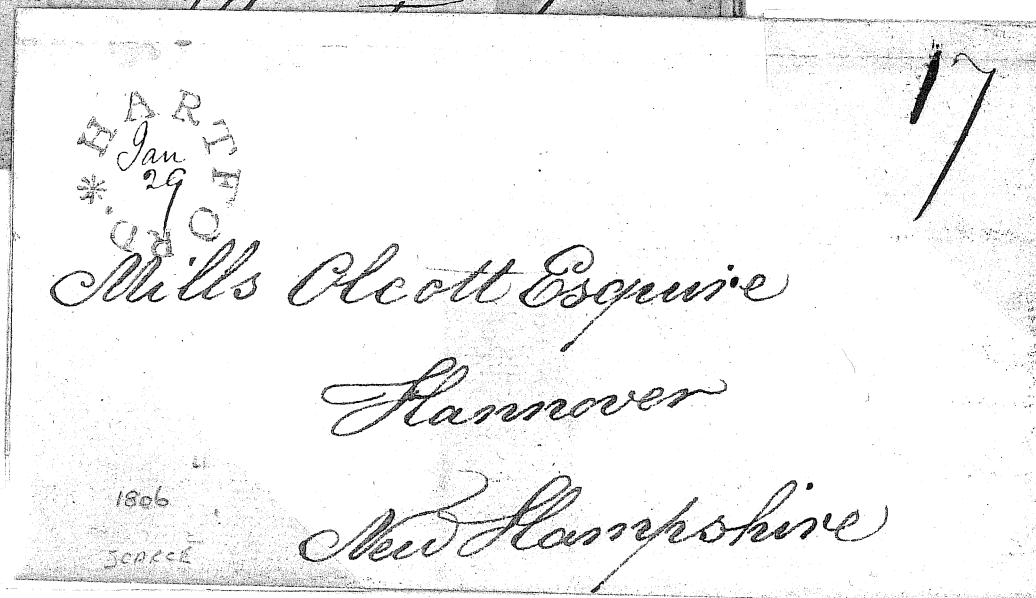 HARTFORD.
Jan
29
17
Mills Olcott Esquire
Hannover
New Hampshire
1806
SCARCE